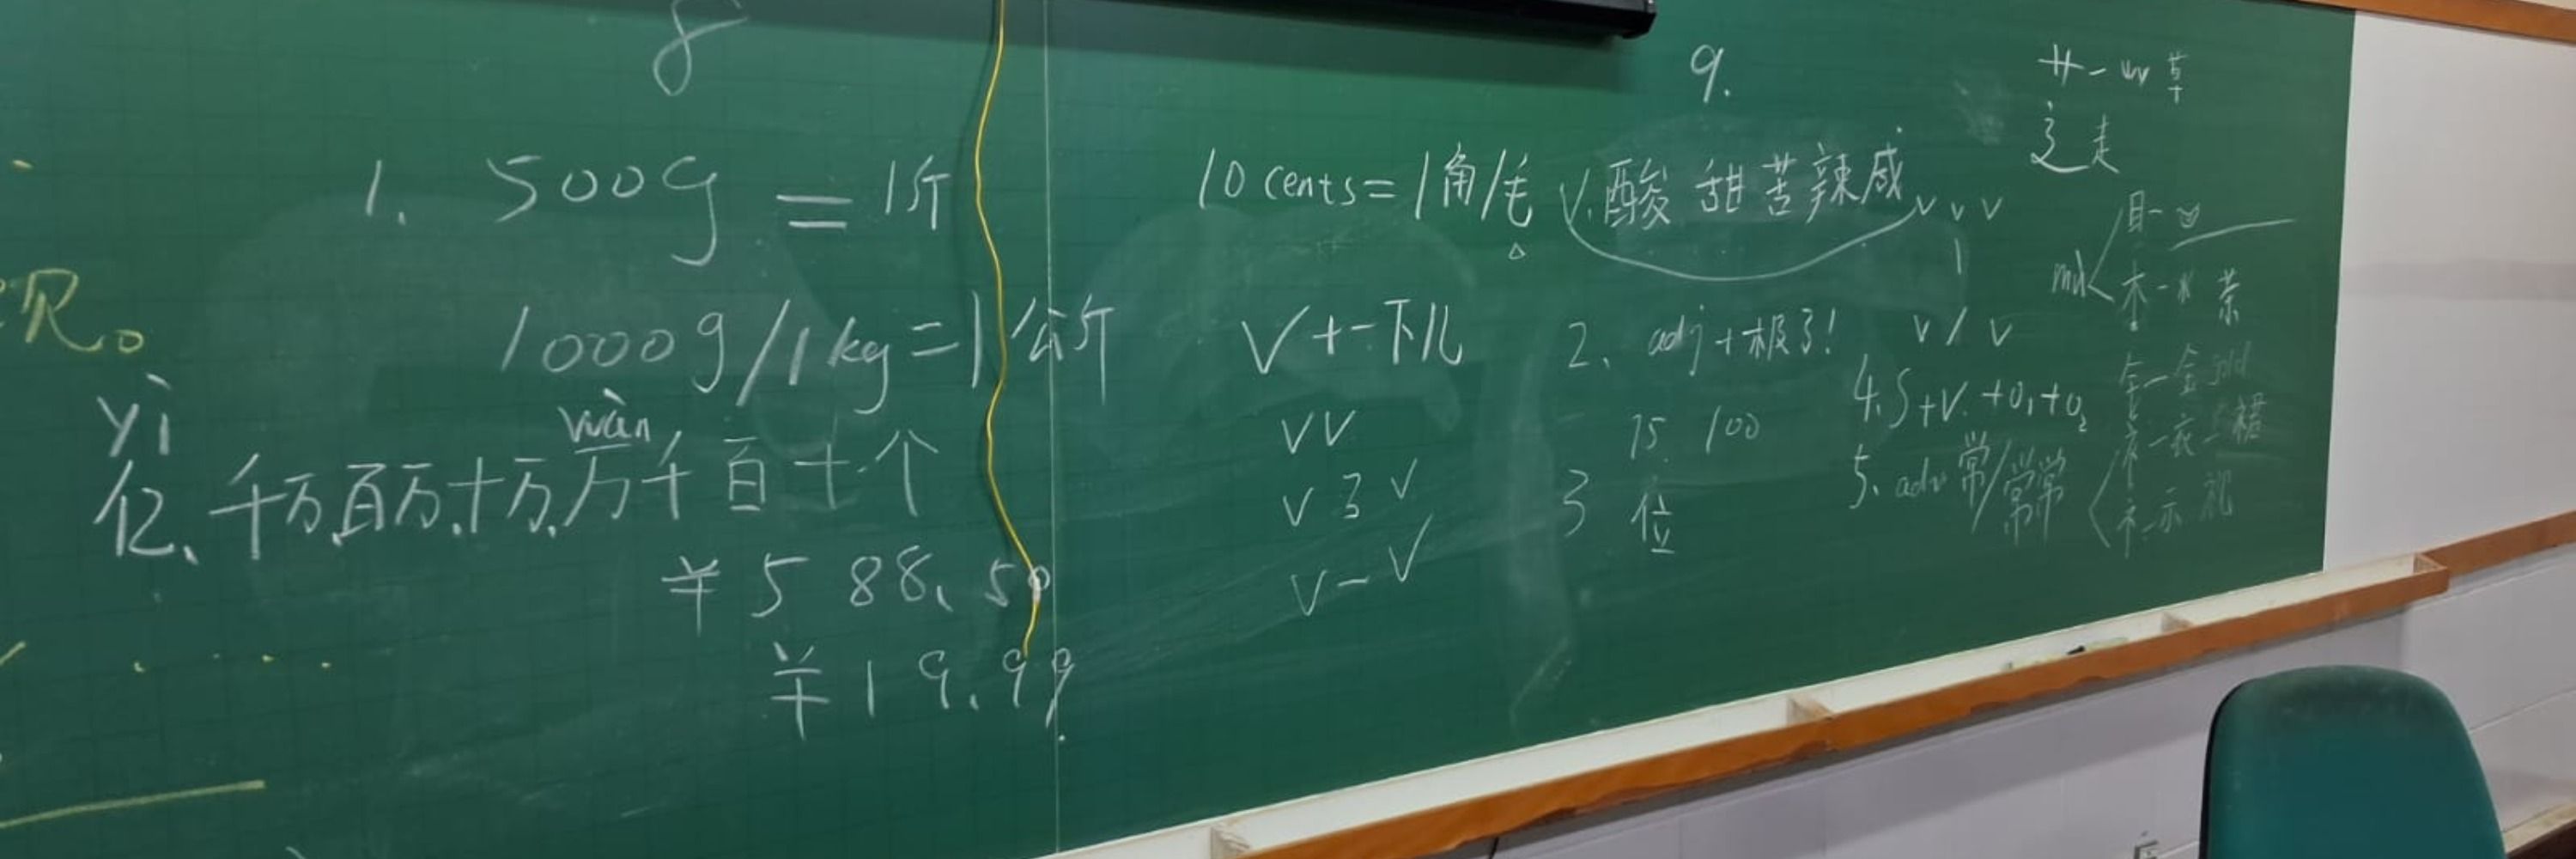 8
1. 500g = 1斤
1000g/1kg=1公斤
yì
wàn
亿、千万、百万、十万、万千百十个
¥588.50
¥19.99
10 cents=1角/毛
V+一下儿
VV
V了V
V一V
9.
1.酸甜苦辣咸
V V V
2、adj+极了!
V / V
15. 100
3 位
4. S+V.+O₁+O₂
5. adv 常/常常
艹-草
辶走
mù
目-
木-木 茶
钅-金 gold
衤-衣 裙
礻-示 祝